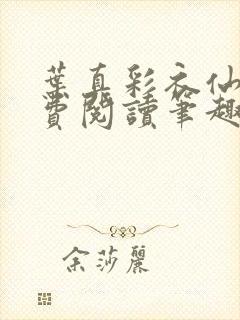 葉真彩衣仙
費閱讀筆趣
余莎麗